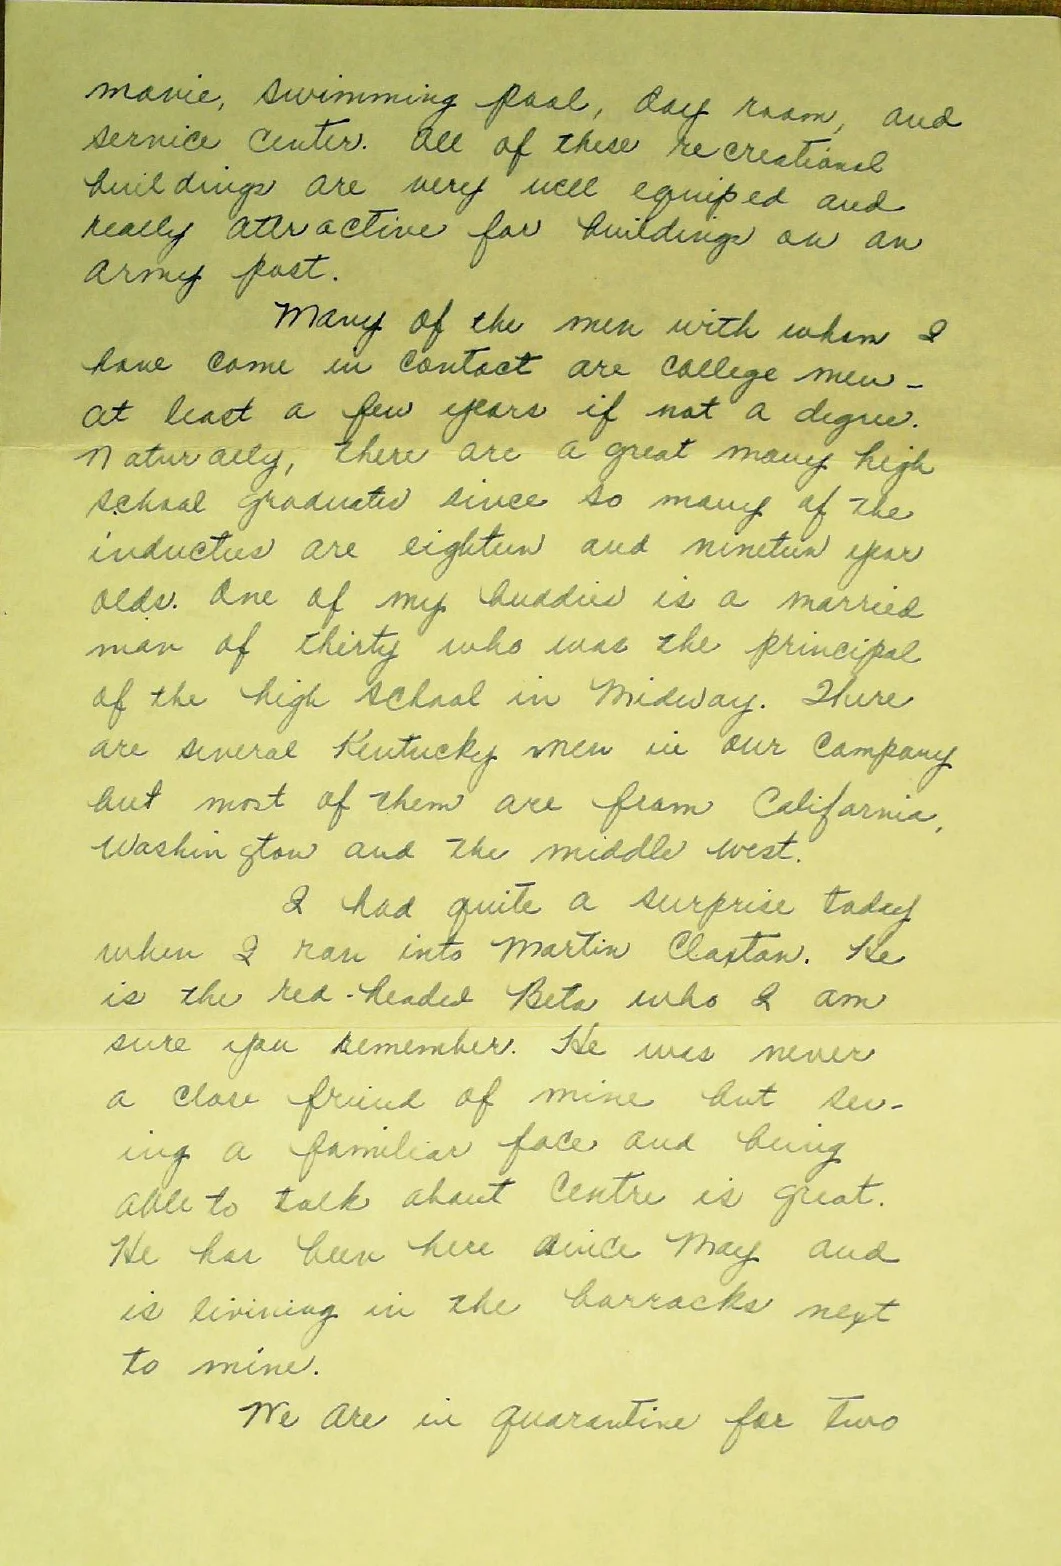 movie, swimming pool, day room, and
service center. All of these recreational
buildings are very well equiped and
really attractive for buildings on an
army post.
Many of the men with whom I
have come in contact are college men -
at least a few years if not a degree.
Naturally, there are a great many high
school graduates since so many of the
inductees are eighteen and nineteen year
olds. One of my buddies is a married
man of thirty who was the principal
of the high school in Midway. There
are several Kentucky men in our company
but most of them are from California,
Washington and the middle west.
I had quite a surprise today
when I ran into Martin Claxton. He
is the red-headed Beta who I am
sure you remember. He was never
a close friend of mine but see-
ing a familiar face and being
able to talk about Centre is great.
He has been here since May and
is livining in the barracks next
to mine.
We are in quarantine for two